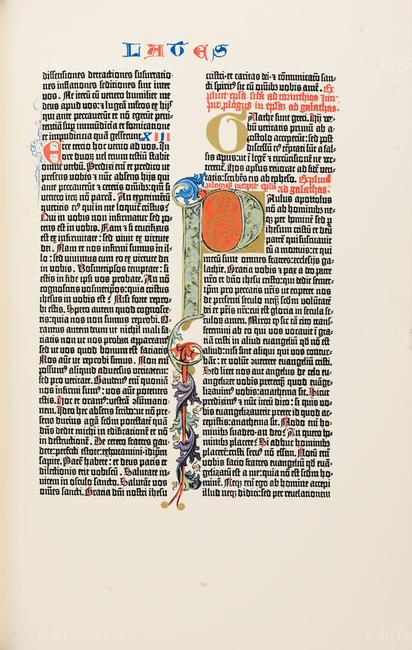 LATES
dissensiones detractiones susurratio-
nes inflationes seditiones sint inter
vos. Ne iterū cū venero humiliet me
deus apud vos: et lugeā multos ex hijs
qui ante peccaverūt et nō egerūt peni-
tentiā sup immūdicia et fornicatione
et impudicicia quā gesserunt. XIII
Ecce tercio hoc venio ad vos. In
ore duoꝝ vel trium testiū stabit
omne verbū. Predixi enī et predico ut
presens vobis et nūc absens hijs qui
ante peccaverūt et ceteris omībꝫ: qm̄ si
venero iterū nō parcā. An experimentū
queritis eiꝰ qui in me loquit᷑ cristus?
Qui in vobis non infirmatur sed po-
tens est in vobis. Nam et si crucifixus
est ex infirmitate: sed vivit ex virtute
dei. Nam et nos infirmi sumus in il-
lo: sed vivimus cum eo ex virtute dei
in vobis. Vosmetipsos temptate: si
estis in fide ipsi vos probate. An nō
cognoscitis vosmetipsos: quia cristus
ihesus in vobis est? Nisi forte repro-
bi estis. Spero autem quod cognosce-
tis: quia nos non sumus reprobi. O-
ramus autem deum ut nichil mali fa-
ciatis: non ut nos probati appareamꝰ
sed ut vos quod bonum est faciatis.
Nos aūt ut reprobi simus. Non enī
possumꝰ aliquid adversus veritatem:
sed pro veritate. Gaudemꝰ enī quoniā
nos infirmi sumꝰ: vos aūt potentes
estis. Hoc et oramꝰ: vestrā consummatio-
nem. Ideo hec absens scribo: ut nō pre-
sens durius agā scdm potestatē quā
dn̄s dedit michi in edificationē et nō
in destructionē. De cetero fratres gau-
dete: perfecti estote: exhortamini: idipm̄
sapite. Pacē habete: et deus pacis et
dilectionis erit vobiscū. Salutate in-
vicem in osculo sancto. Salutāt vos
oēs sancti. Gratia dn̄i nostri ihesu
cristi: et caritas dei: et cōmunicatō san-
cti spiritꝰ sit cū omībꝫ vobis amē. Ex-
plicit epla scda ad corinthios Inci-
pit plogus in epla ad galathas.
Galathe sunt greci. Hij ver-
bū veritatis primū ab a-
postolo acceperūt: sed post
discessū eiꝰ temptati sūt a fal-
sis aplis: ut ī legē et circūcisionē ve-
ret᷑. Hos apłus revocat ad fidē veri-
tatis: scribēs eis ab epheso. Explicit
plogus incipit epla ad galathas.
Paulus apostolus
nō ab hominibꝫ ne-
qꝫ per hominē: sed p̱
ihesum cristū et deū
patrē qui suscitavit
eū a mortuis: et qui
mecū sunt omnes fratres: ecclesijs ga-
lathie. Gratia vobis et pax a deo patre
et dn̄o nostro ihesu cristo: qui dedit semet-
ipm̄ pro peccatis nris: ut eriperet nos
de presenti seculo neqꝫ scdm volūtatē
dei et pris nr̄i: cui est gloria in secula se-
culoꝝ amen. Miror qꝫ sic tā cito trans-
ferimini ab eo qui vos vocavit ī grā-
tiā cristi in aliud euangeliū: qd̄ nō est
aliud: nisi sunt aliqui qui vos contur-
bāt: et volūt ꝯvertere euangeliū cristi.
Sed licet nos aut angelus de celo eu-
angelizet vobis preterqꝫ quod euāge-
lizavimꝰ vobis: anathema sit. Sicut
prediximꝰ et nūc iterū dico: si quis vo-
bis euangelizaverit preter id quod ac-
cepistis: anathema sit. Modo enī ho-
minibꝫ suadeo an deo? An quero ho-
minibꝫ placere? Si adhuc hominibꝫ
placerē: cristi servꝰ nō essem. Notū enī
vobis facio fratres euangeliū qd̄ euā-
gelizatū est a me: quia nō est scdm ho-
minē. Neqꝫ enī ego ab homine accepi
illud neqꝫ didici: sed per revelationem
© Art Resource